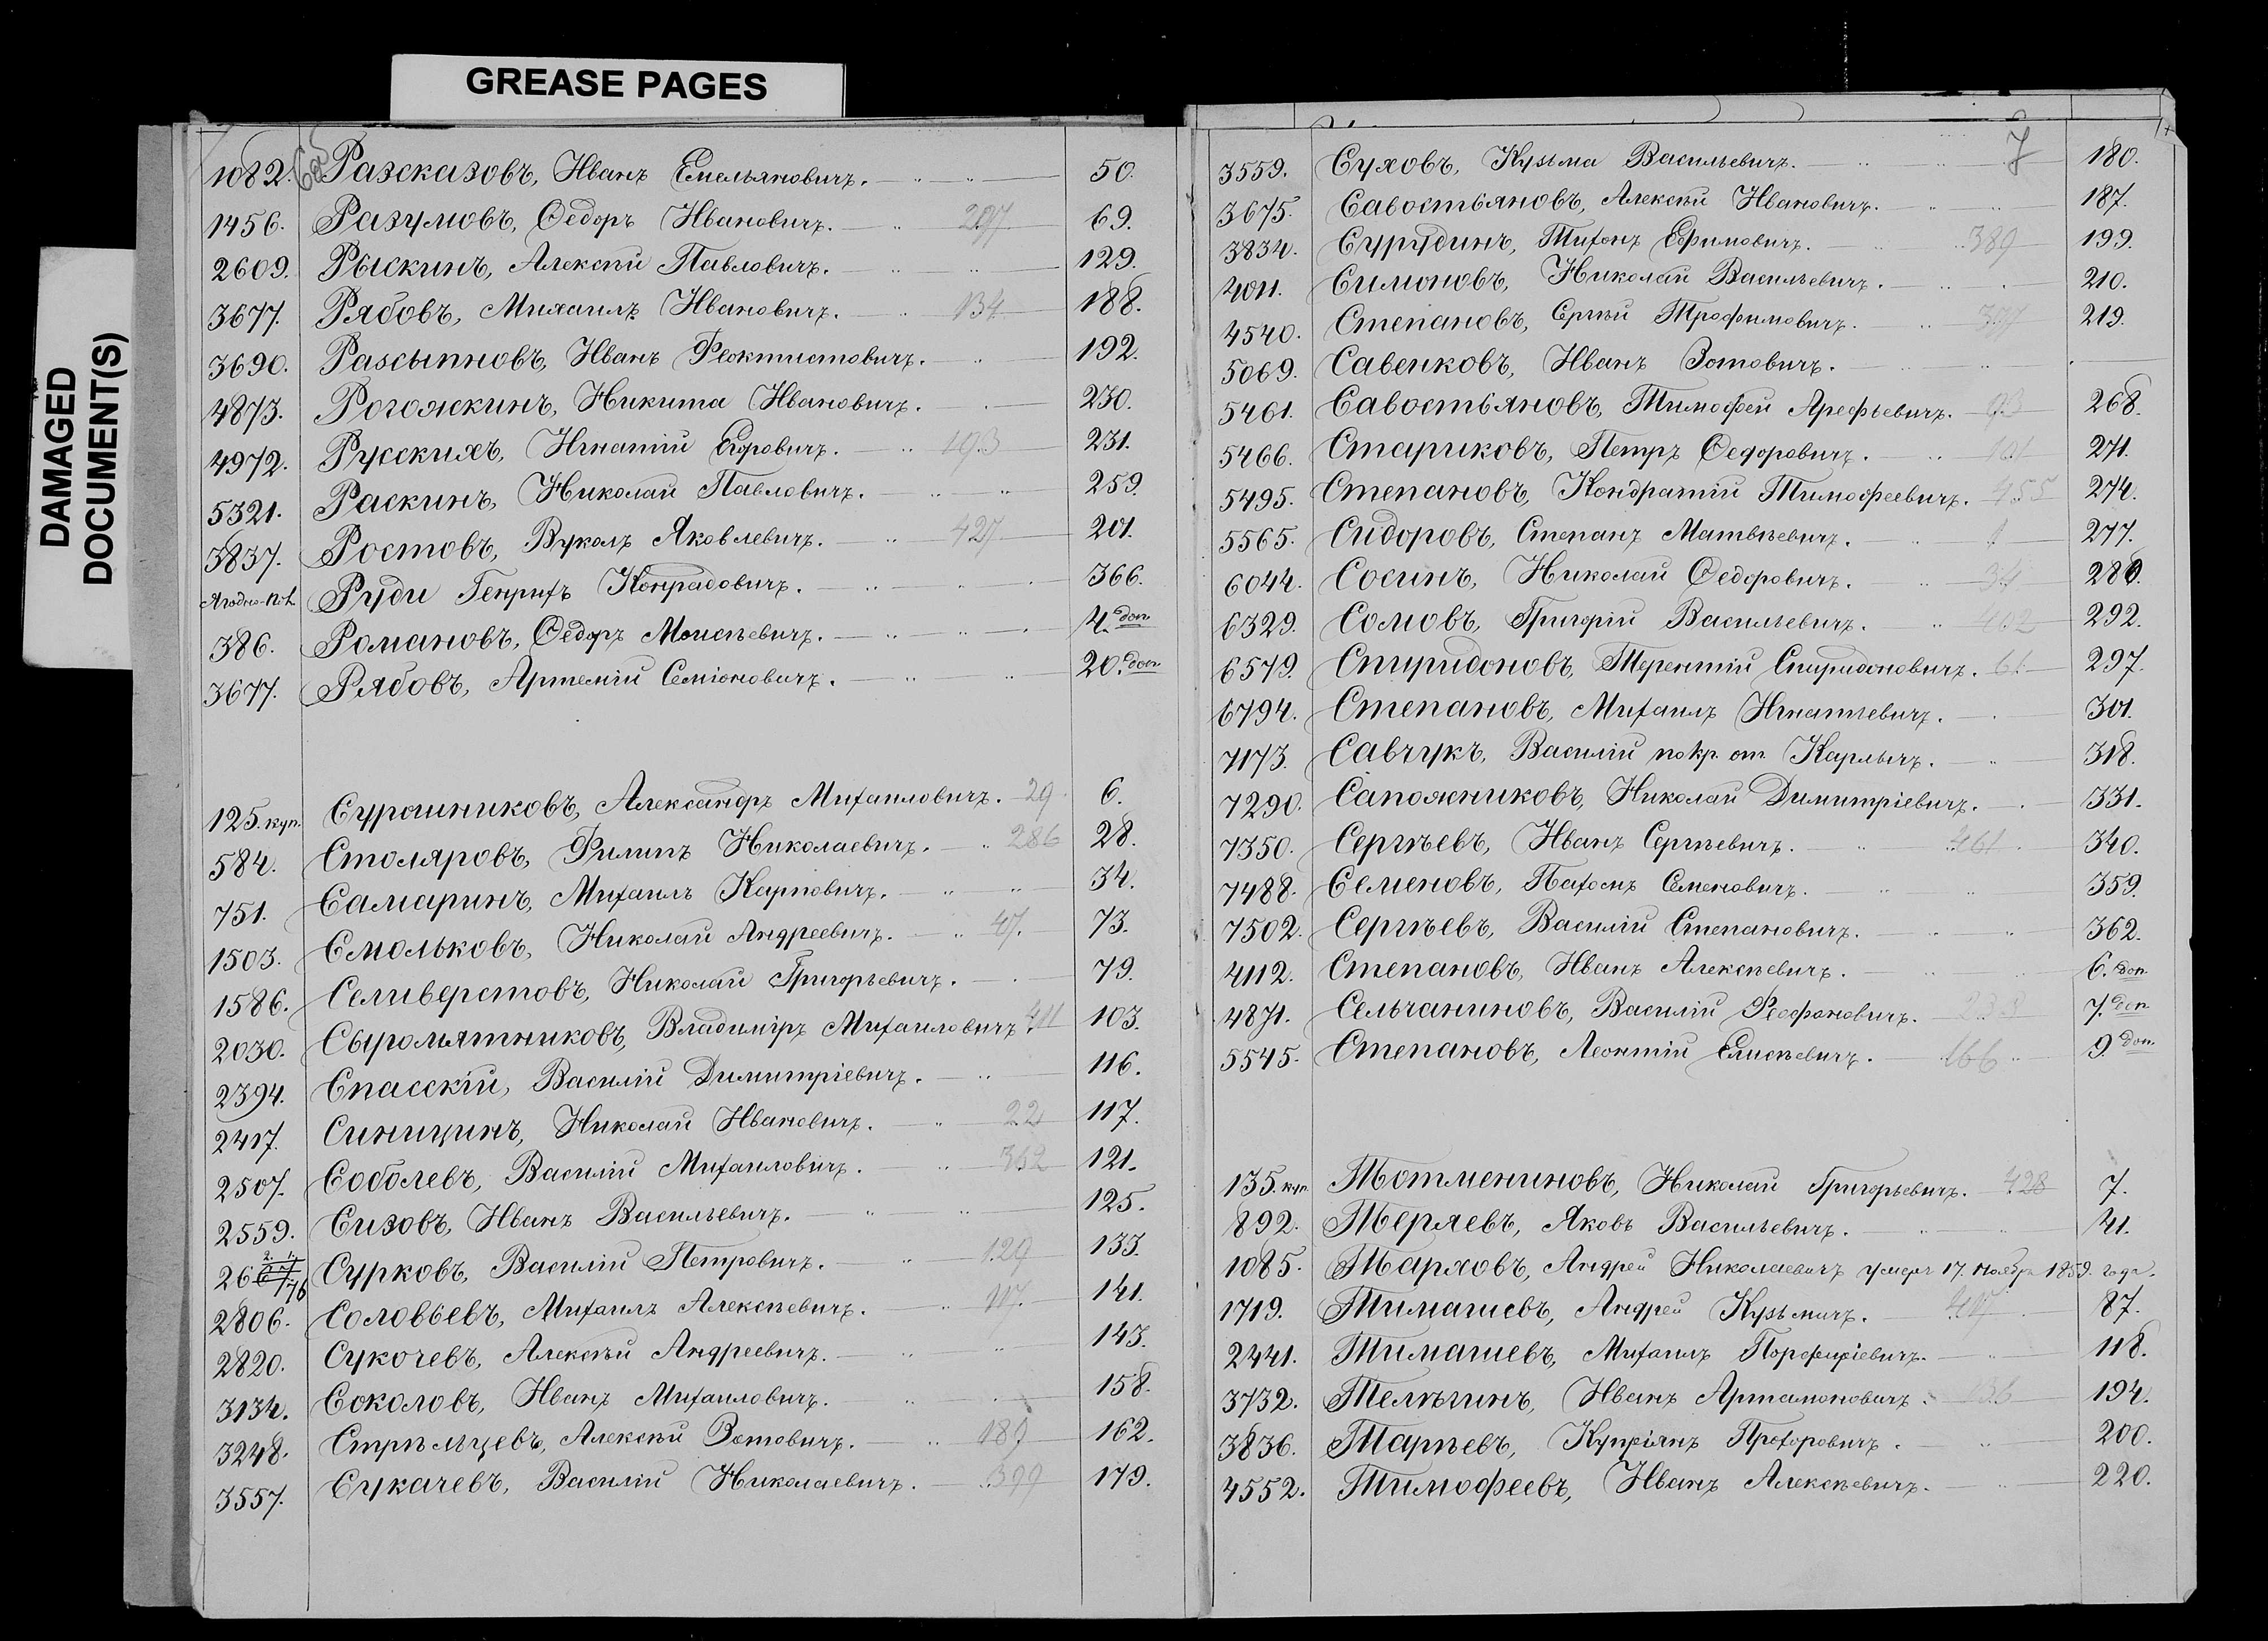 GREASE PAGES
DAMAGED
DOCUMENT(S)
1082. Разсказовъ, Иванъ Емельяновичъ. 50.
1456. Разумовъ, Ѳедоръ Ивановичъ. 297 69.
2609. Рыскинъ, Алексѣй Павловичъ. 129.
3677. Рябовъ, Михаилъ Ивановичъ. 134 188.
3690. Разсыпновъ, Иванъ Феоктистовичъ. 192.
4873. Рогожкинъ, Никита Ивановичъ. 230.
4972. Русскихъ, Игнатій Егоровичъ. 193 231.
5321. Раскинъ, Николай Павловичъ. 259.
3837. Ростовъ, Вуколъ Яковлевичъ. 427 201.
Ягодно-пол. Руди Генрихъ Конрадовичъ. 366.
386. Романовъ, Ѳедоръ Моисѣевичъ. 4. доп.
3677. Рябовъ, Артемій Семіоновичъ. 20. доп.
125. куп. Сурошниковъ, Александръ Михаиловичъ. 29 6.
584. Столяровъ, Филипъ Николаевичъ. 286 28.
751. Самаринъ, Михаилъ Карповичъ. 34.
1503. Смольковъ, Николай Андреевичъ. 47. 73.
1586. Селиверстовъ, Николай Григорьевичъ. 79.
2030. Сыромятниковъ, Владиміръ Михаиловичъ. 411 103.
2394. Спасскій, Василій Димитріевичъ. 116.
2417. Синицинъ, Николай Ивановичъ. 22 117.
2507. Соболевъ, Василій Михаиловичъ. 362 121.
2559. Сизовъ, Иванъ Васильевичъ. 125.
26 76 Сурковъ, Василій Петровичъ. 129 133.
2806. Соловьевъ, Михаилъ Алексѣевичъ. 117. 141.
2820. Сукочевъ, Алексѣй Андреевичъ. 143.
3134. Соколовъ, Иванъ Михаиловичъ. 158.
3248. Стрѣльцевъ, Алексѣй Зотовичъ. 189 162.
3557. Сукачевъ, Василій Николаевичъ. 399 179.
7
3559. Суховъ, Кузьма Васильевичъ. 180.
3675. Савостьяновъ, Алексѣй Ивановичъ. 187.
3834. Сурудинъ, Тихонъ Ефимовичъ. 389 199.
4011. Симоновъ, Николай Васильевичъ. 210.
4540. Степановъ, Сергѣй Трофимовичъ. 219.
5069. Савенковъ, Иванъ Зотовичъ.
5461. Савостьяновъ, Тимофей Арефьевичъ. 93 268.
5466. Стариковъ, Петръ Ѳедоровичъ. 101 271.
5495. Степановъ, Кондратій Тимофеевичъ. 455 274.
5565. Сидоровъ, Степанъ Матвѣевичъ. 277.
6044. Сосинъ, Николай Ѳедоровичъ. 34 280.
6329. Сомовъ, Григорій Васильевичъ. 402 292.
6579. Спиридоновъ, Терентій Спиридоновичъ. 61. 297.
6794. Степановъ, Михаилъ Игнатьевичъ. 301.
7173. Савчукъ, Василій по кр. от. Карлычъ. 318.
7290. Сапожниковъ, Николай Димитріевичъ. 331.
7350. Сергѣевъ, Иванъ Сергѣевичъ. 461 340.
7488. Семеновъ, Пахомъ Семеновичъ. 359.
7502. Сергѣевъ, Василій Степановичъ. 362.
4112. Степановъ, Иванъ Алексѣевичъ. 6. доп.
4871. Сельчаниновъ, Василій Феофановичъ. 7. доп.
5545. Степановъ, Леонтій Елисѣевичъ. 166 9 доп.
135. куп. Тотмениновъ, Николай Григорьевичъ. 428 7.
892. Теряевъ, Яковъ Васильевичъ. 41.
1085. Тарховъ, Андрей Николаевичъ умеръ 17. ноября 1859. года.
1719. Тимашевъ, Андрей Кузьмичъ. 417 87.
2441. Тимашевъ, Михаилъ Порфиріевичъ. 118.
3732. Телѣгинъ, Иванъ Артамоновичъ. 136 194.
3836. Тарѣевъ, Купріянъ Прохоровичъ. 200.
4552. Тимофеевъ, Иванъ Алексѣевичъ. 220.